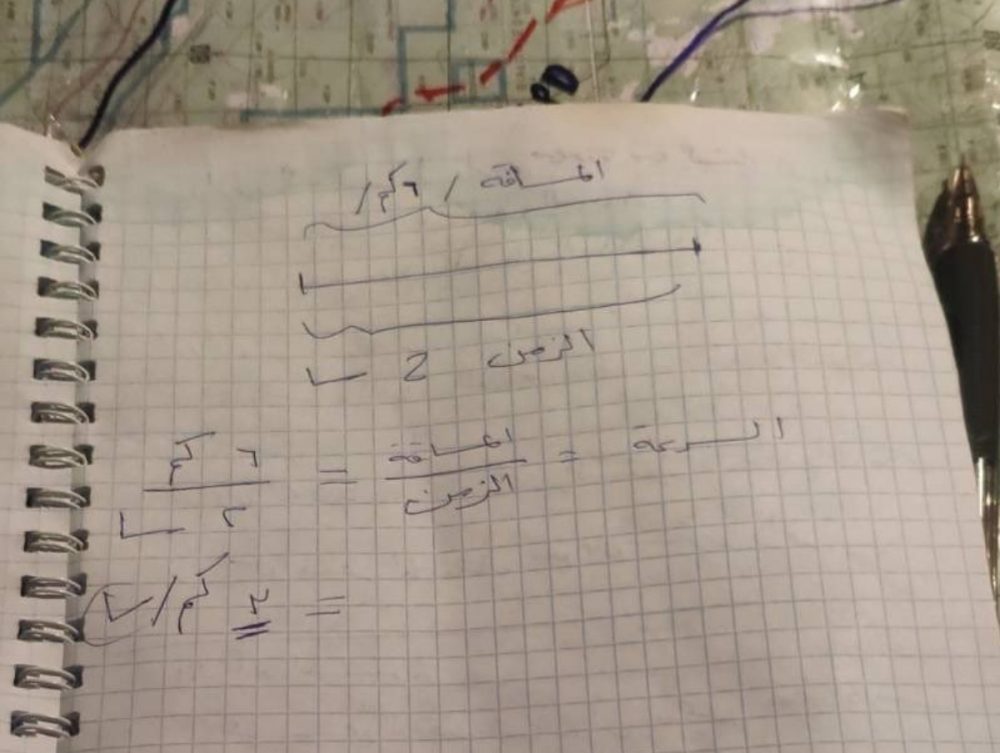 المسافة / ٦ كم /
الزمن 2 س
السرعة = المسافة / الزمن = ٦ كم / ٢ س
= ٣ كم/س